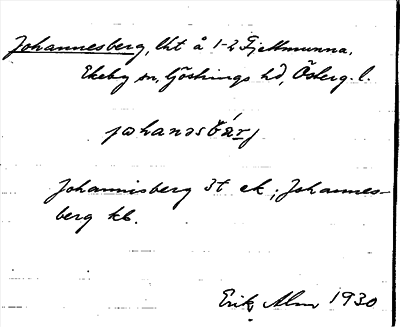 Johannesberg, lht å 1-2 Fjettmunna,
Ekeby sn, Göstrings hd, Österg. l.
johanasbárj
Johannisberg Jt ek; Johannes-
berg kb.
Erik Alm 1930